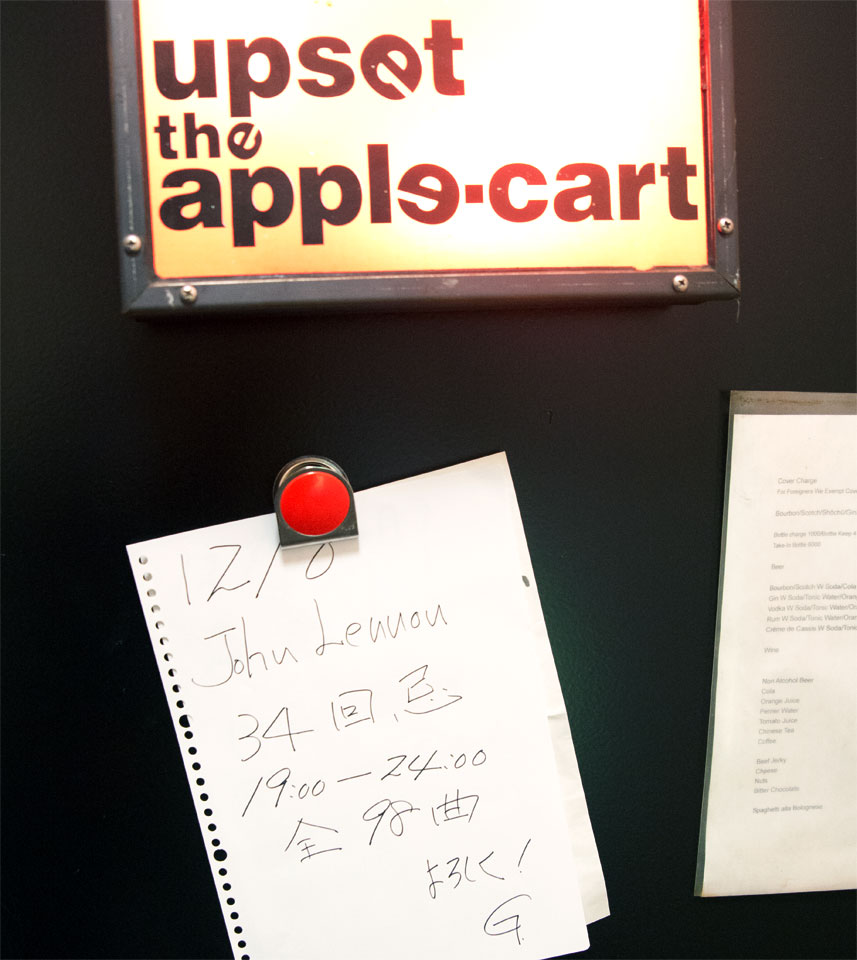 upset
the
apple-cart
John Lennon
34回忌
19:00 — 24:00
全98曲
よろしく!
G.
Cover Charge
For Foreigners We Exempt
Bourbon/Scotch/Shōchū/Gin
Bottle charge
Take-In Bottle
Beer
Bourbon/Scotch W Soda/Cola
Gin W Soda/Tonic Water/Oran
Vodka W Soda/Tonic Water/Oran
Rum W Soda/Tonic Water/Oran
Crème de Cassis W Soda/Tonic
Wine
Non Alcohol Beer
Cola
Orange Juice
Perrier Water
Tomato Juice
Chinese Tea
Coffee
Beef Jerky
Cheese
Nuts
Bitter Chocolate
Spaghetti alla Bolognese